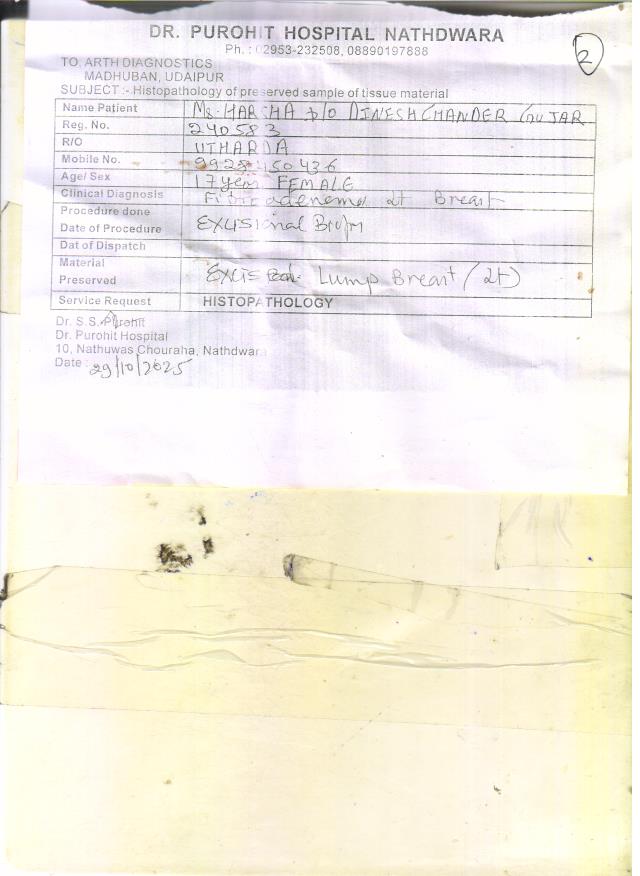 DR. PUROHIT HOSPITAL NATHDWARA
Ph. : 02953-232508, 08890197888
2
TO, ARTH DIAGNOSTICS
MADHUBAN, UDAIPUR
SUBJECT :- Histopathology of preserved sample of tissue material
Name Patient Ms. HARSHA D/O DINESH CHANDER GUJAR
Reg. No. 240583
R/O UTHARDA
Mobile No. 9928450436
Age/ Sex 17 year FEMALE
Clinical Diagnosis Fibroadenema Lt Breast
Procedure done
Date of Procedure Excisional Biopsy
Dat of Dispatch
Material
Preserved Lump Breast (Lt)
Service Request HISTOPATHOLOGY
Dr. S.S. Purohit
Dr. Purohit Hospital
10, Nathuwas Chouraha, Nathdwara
Date : 29/10/2025